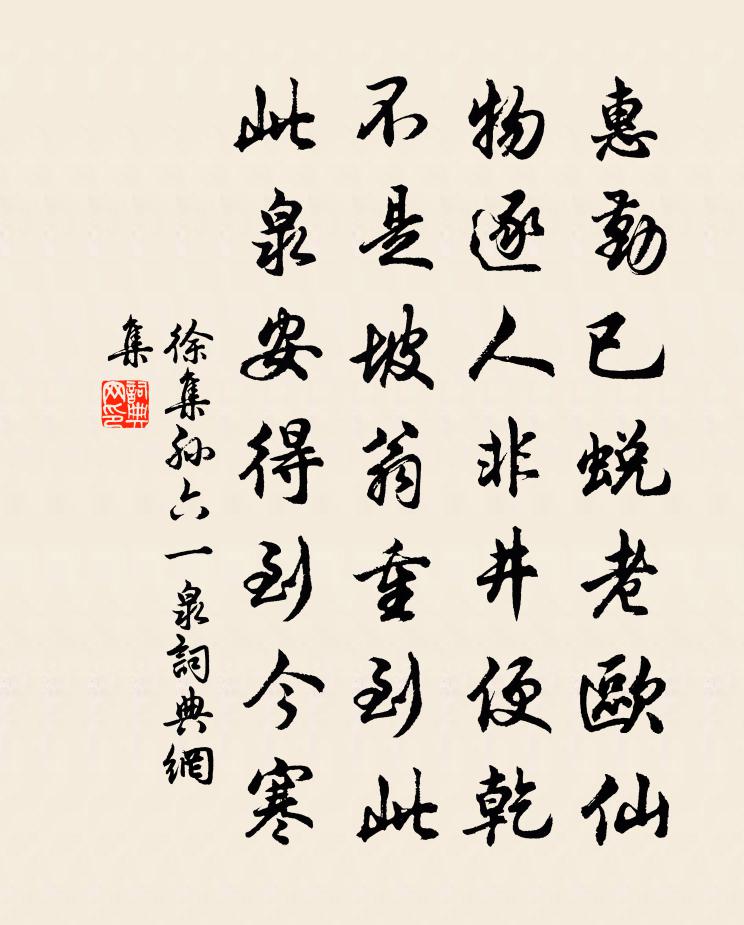 惠勤已蜕老歐仙
物逐人非井便乾
不是坡翁重到此
此泉安得到今寒
徐集孫六一泉詞典網
集
詞典網印